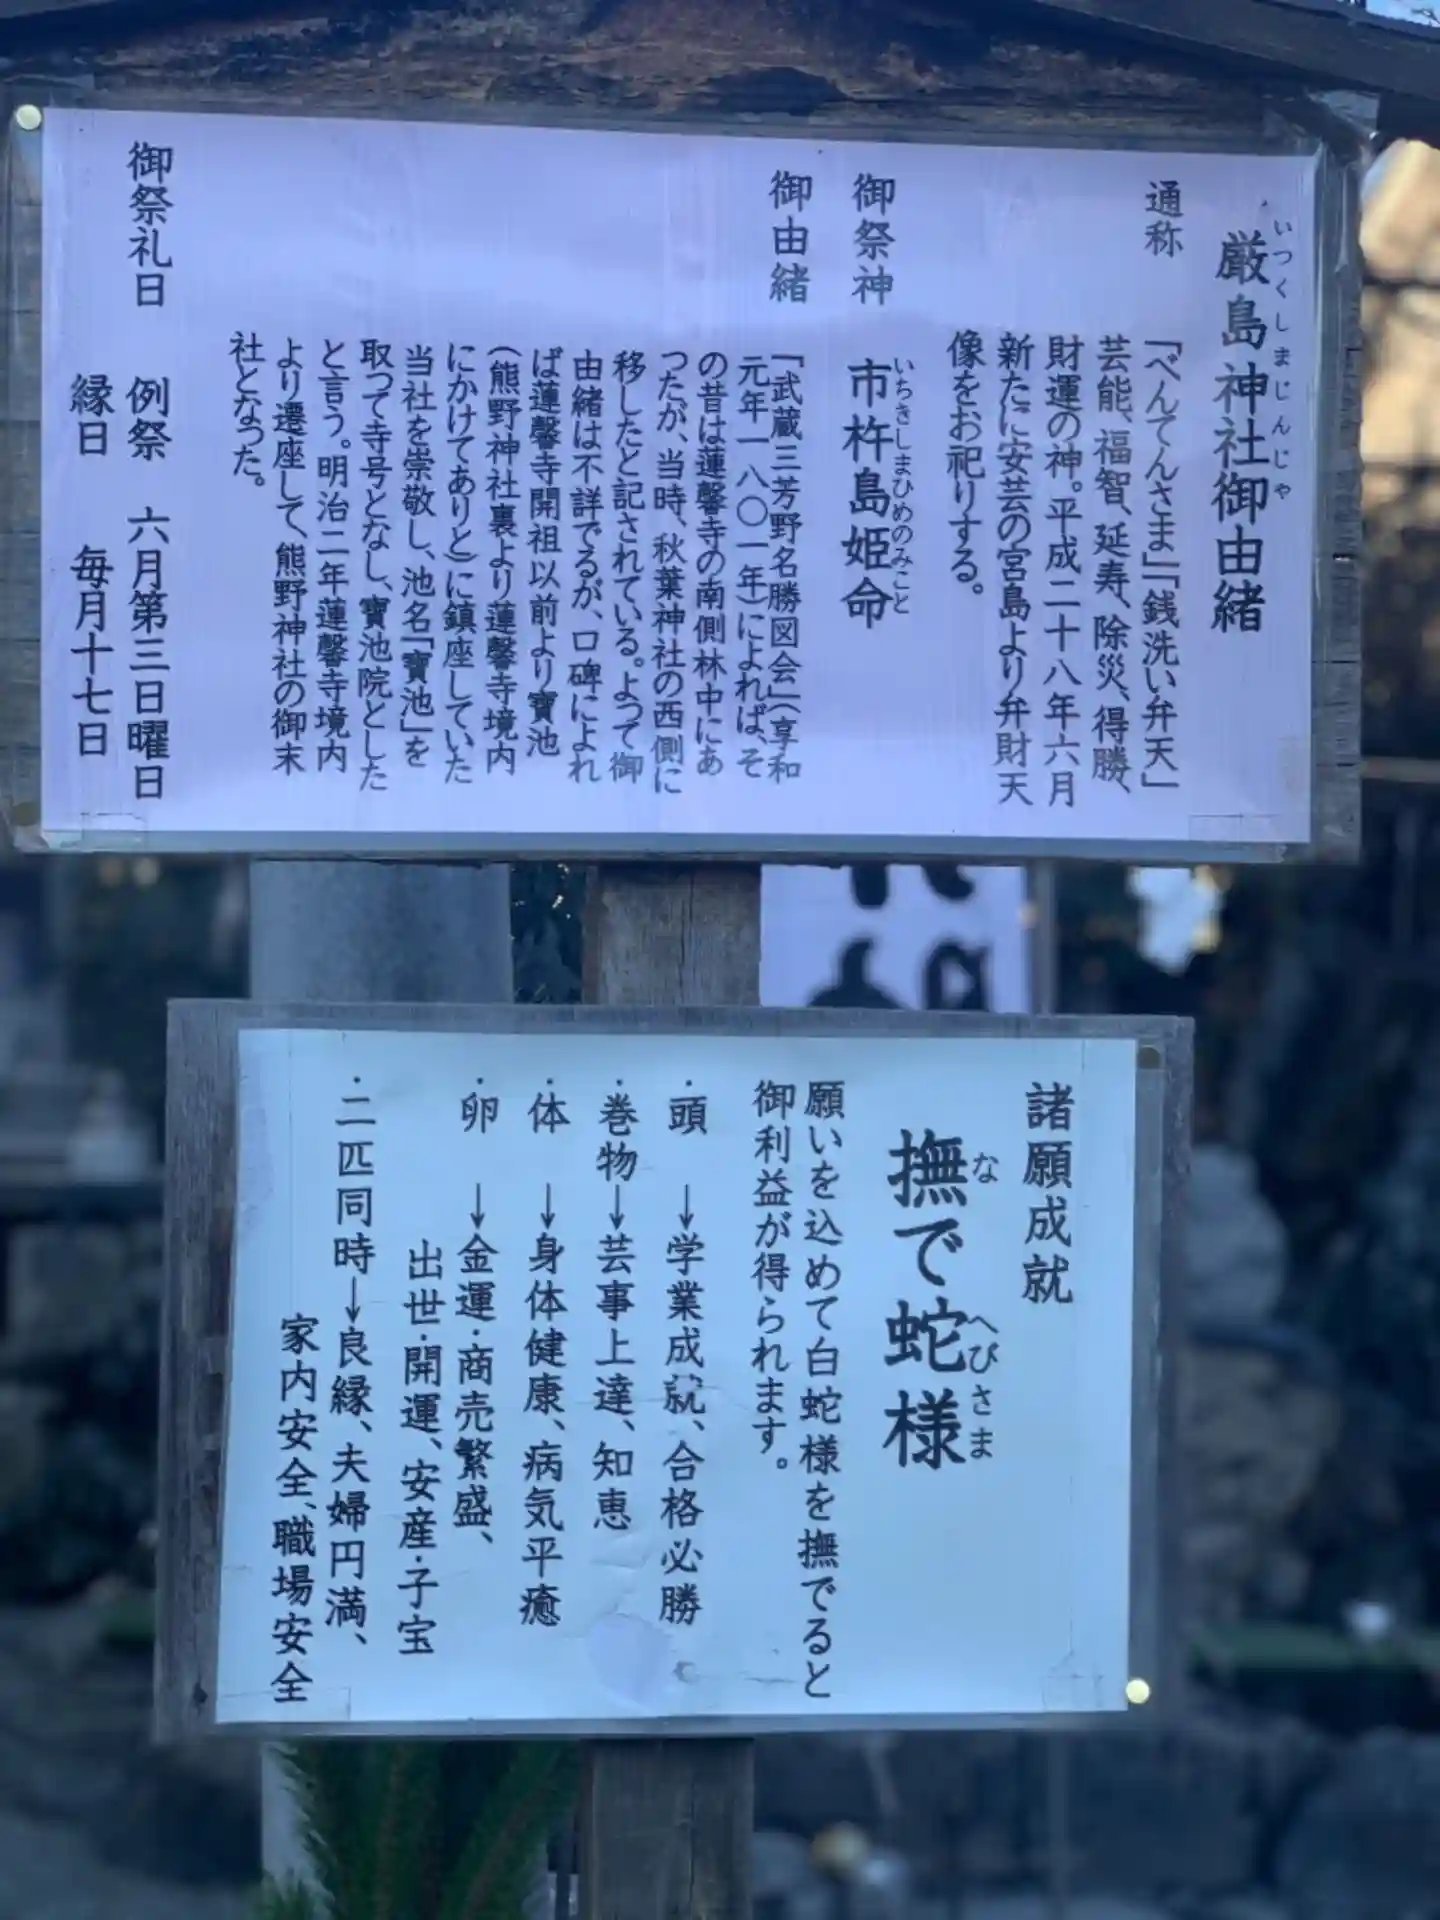 厳島神社御由緒
いつくしまじんじゃ
通称
「べんてんさま」「銭洗い弁天」
芸能、福智、延寿、除災、得勝、
財運の神。平成二十八年六月
新たに安芸の宮島より弁財天
像をお祀りする。
御祭神
市杵島姫命
いちきしまひめのみこと
御由緒
「武蔵三芳野名勝図会」(享和
元年一八〇一年)によれば、そ
の昔は蓮馨寺の南側林中にあ
つたが、当時、秋葉神社の西側に
移したと記されている。よって御
由緒は不詳でるが、口碑によれ
ば蓮馨寺開祖以前より寶池
(熊野神社裏より蓮馨寺境内
にかけてありと)に鎮座していた
当社を崇敬し、池名「寶池」を
取つて寺号となし、寶池院とした
と言う。明治二年蓮馨寺境内
より遷座して、熊野神社の御末
社となった。
御祭礼日
例祭 六月第三日曜日
縁日 毎月十七日
諸願成就
撫で蛇様
な へびさま
願いを込めて白蛇様を撫でると
御利益が得られます。
・頭 →学業成就、合格必勝
・巻物→芸事上達、知恵
・体 →身体健康、病気平癒
・卵 →金運・商売繁盛、
出世・開運、安産・子宝
・二匹同時→良縁、夫婦円満、
家内安全、職場安全